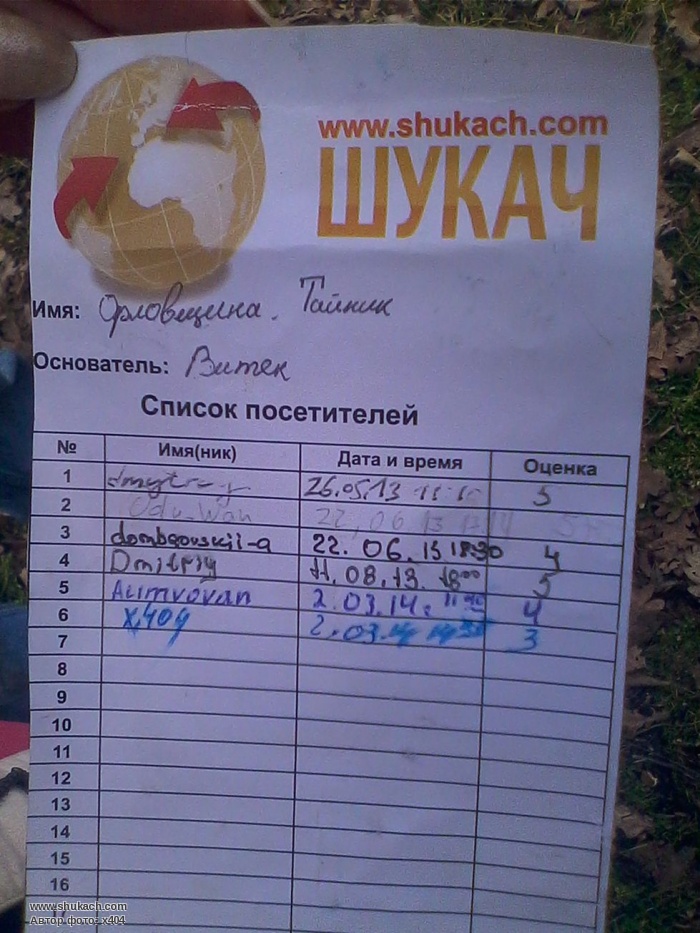 www.shukach.com
ШУКАЧ
Имя: Орловщина. Тайник
Основатель: Витек
Список посетителей
№ Имя(ник) Дата и время Оценка
1 26.05.13 5
2 22.06.13
3 dombrovskii-a 22.06.13 18:30 4
4 Dmitriy 11.08.13. 18:00 5
5 Alimvovan 2.03.14г 4
6 x404 2.03.14 3
7
8
9
10
11
12
13
14
15
16
17
www.shukach.com
Автор фото: x404